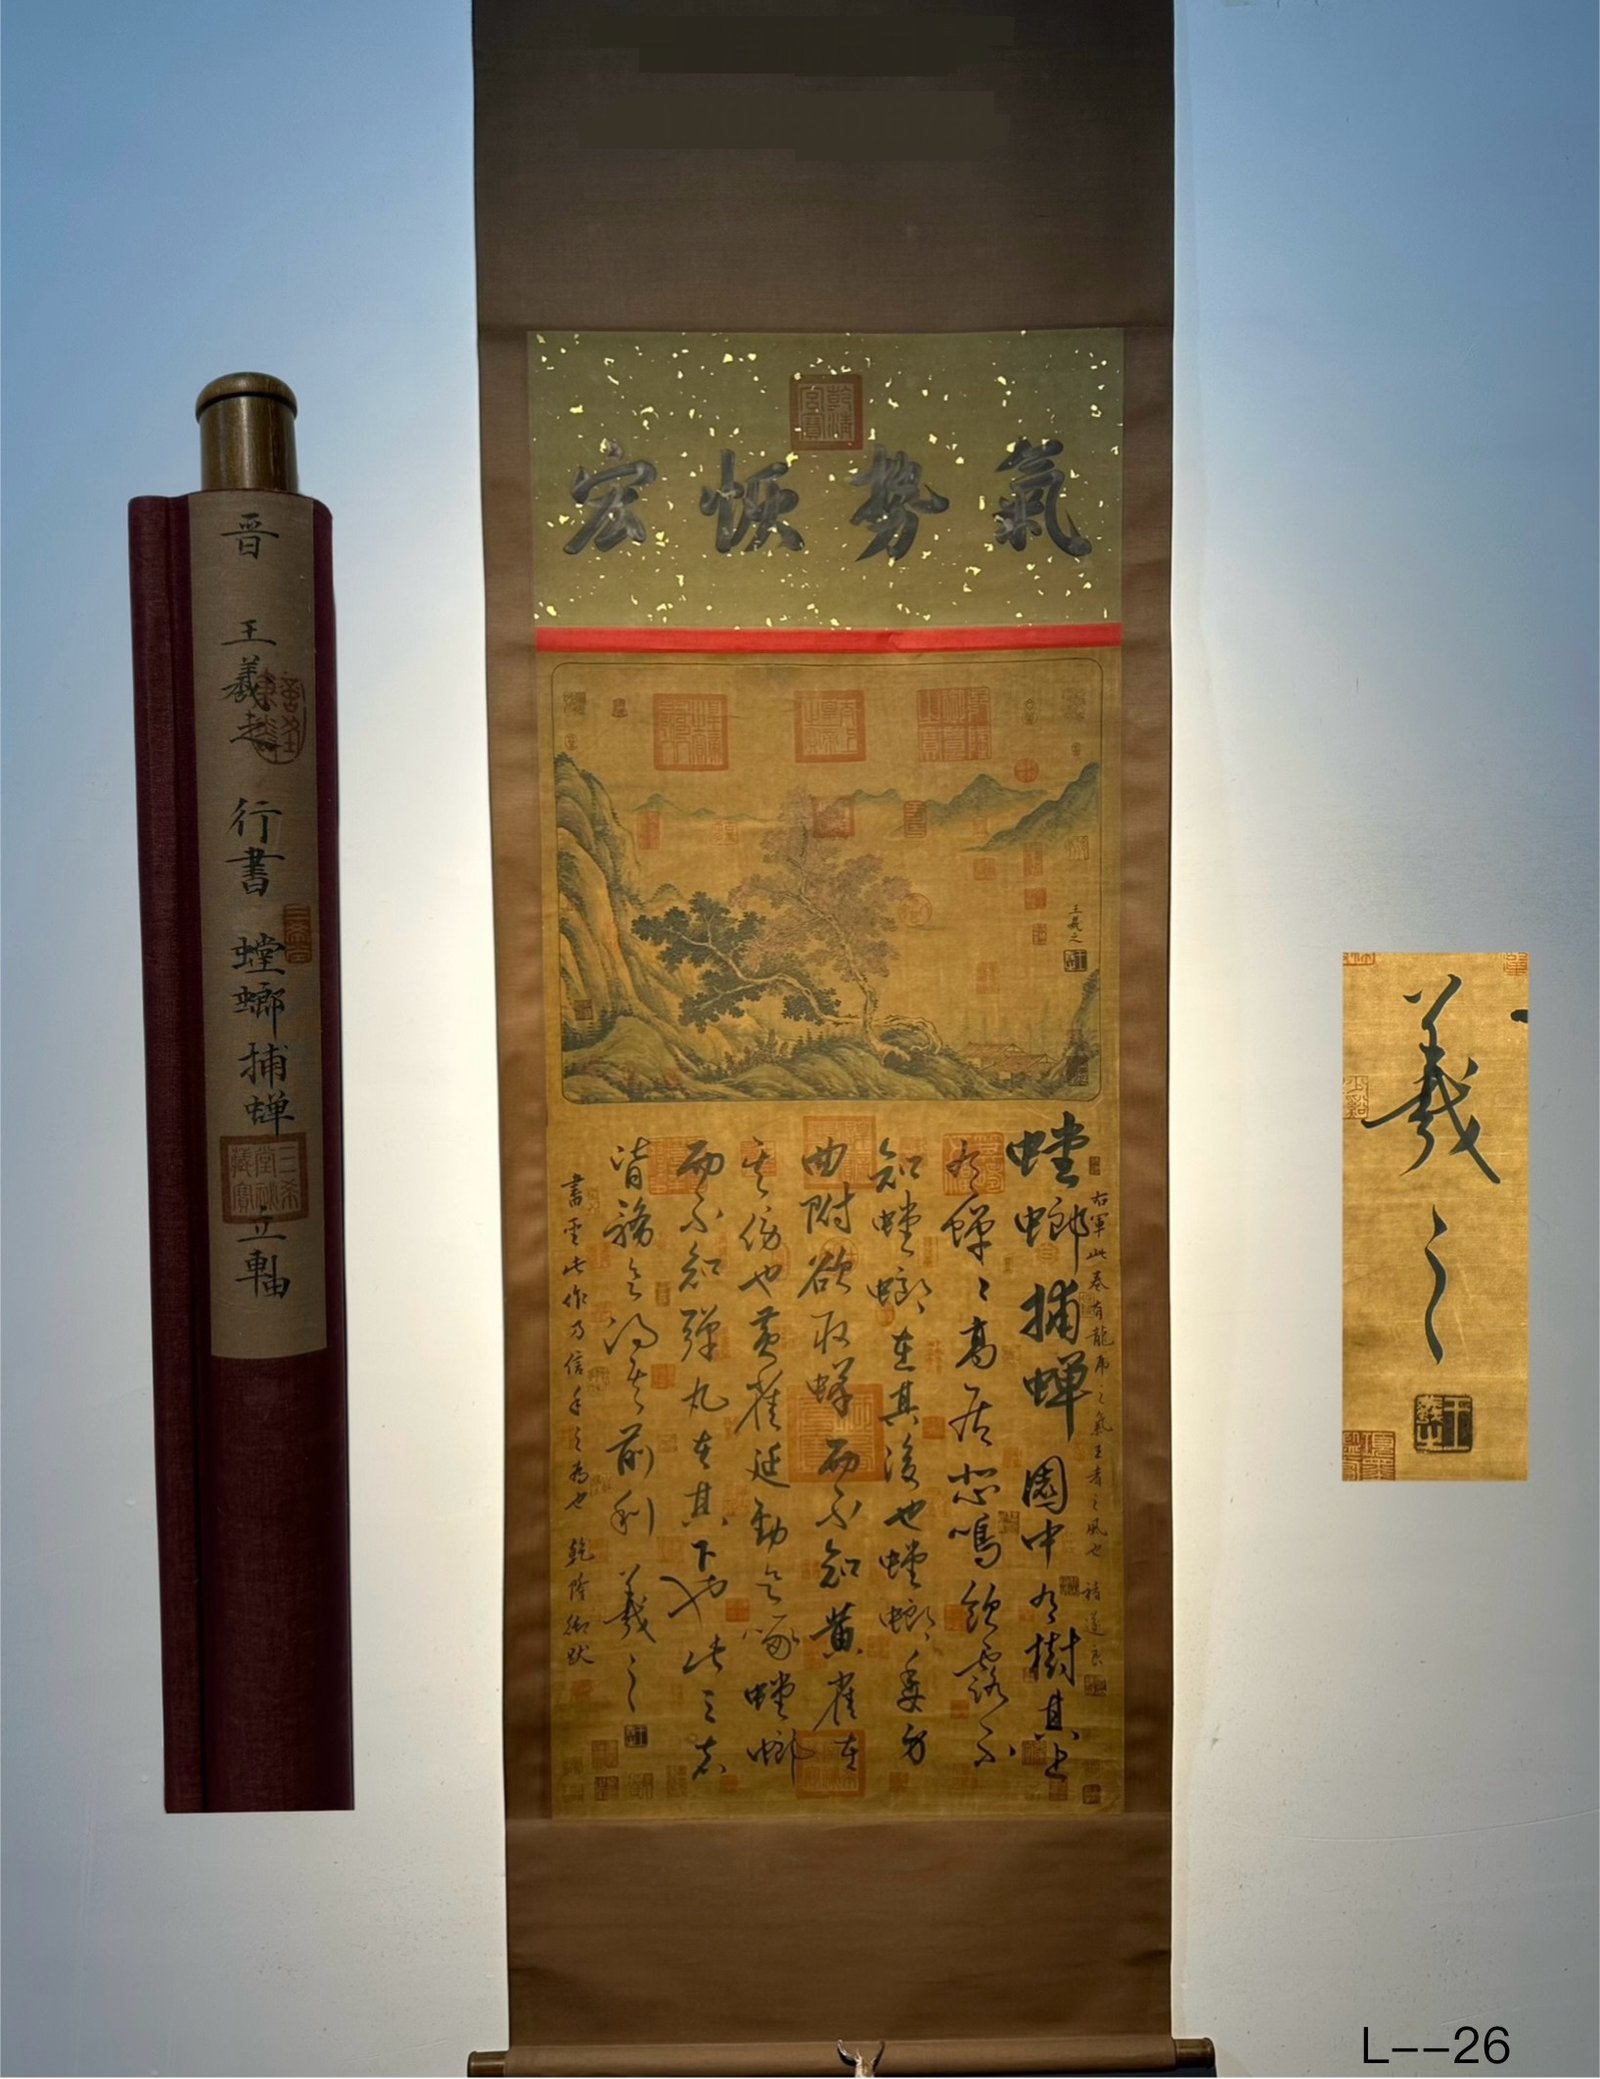 晋 王羲之 行書 螳螂捕蝉 立軸
三希堂秘藏寶
乾清宮寶
氣勢恢宏
王羲之
右軍此卷有龍之氣王者之風也 褚遂良
螳螂捕蝉 園中有樹其上
有蟬〻高居悲鳴飲露不
知螳螂在其後也螳螂委身
曲附欲取蟬而不知黄雀在
其傍也黄雀延欲啄螳螂
而不知彈丸在其下也此三者
皆務欲得其前利 羲之
書聖此作乃信手之為也 乾隆御跋
羲之
王羲之
L--26